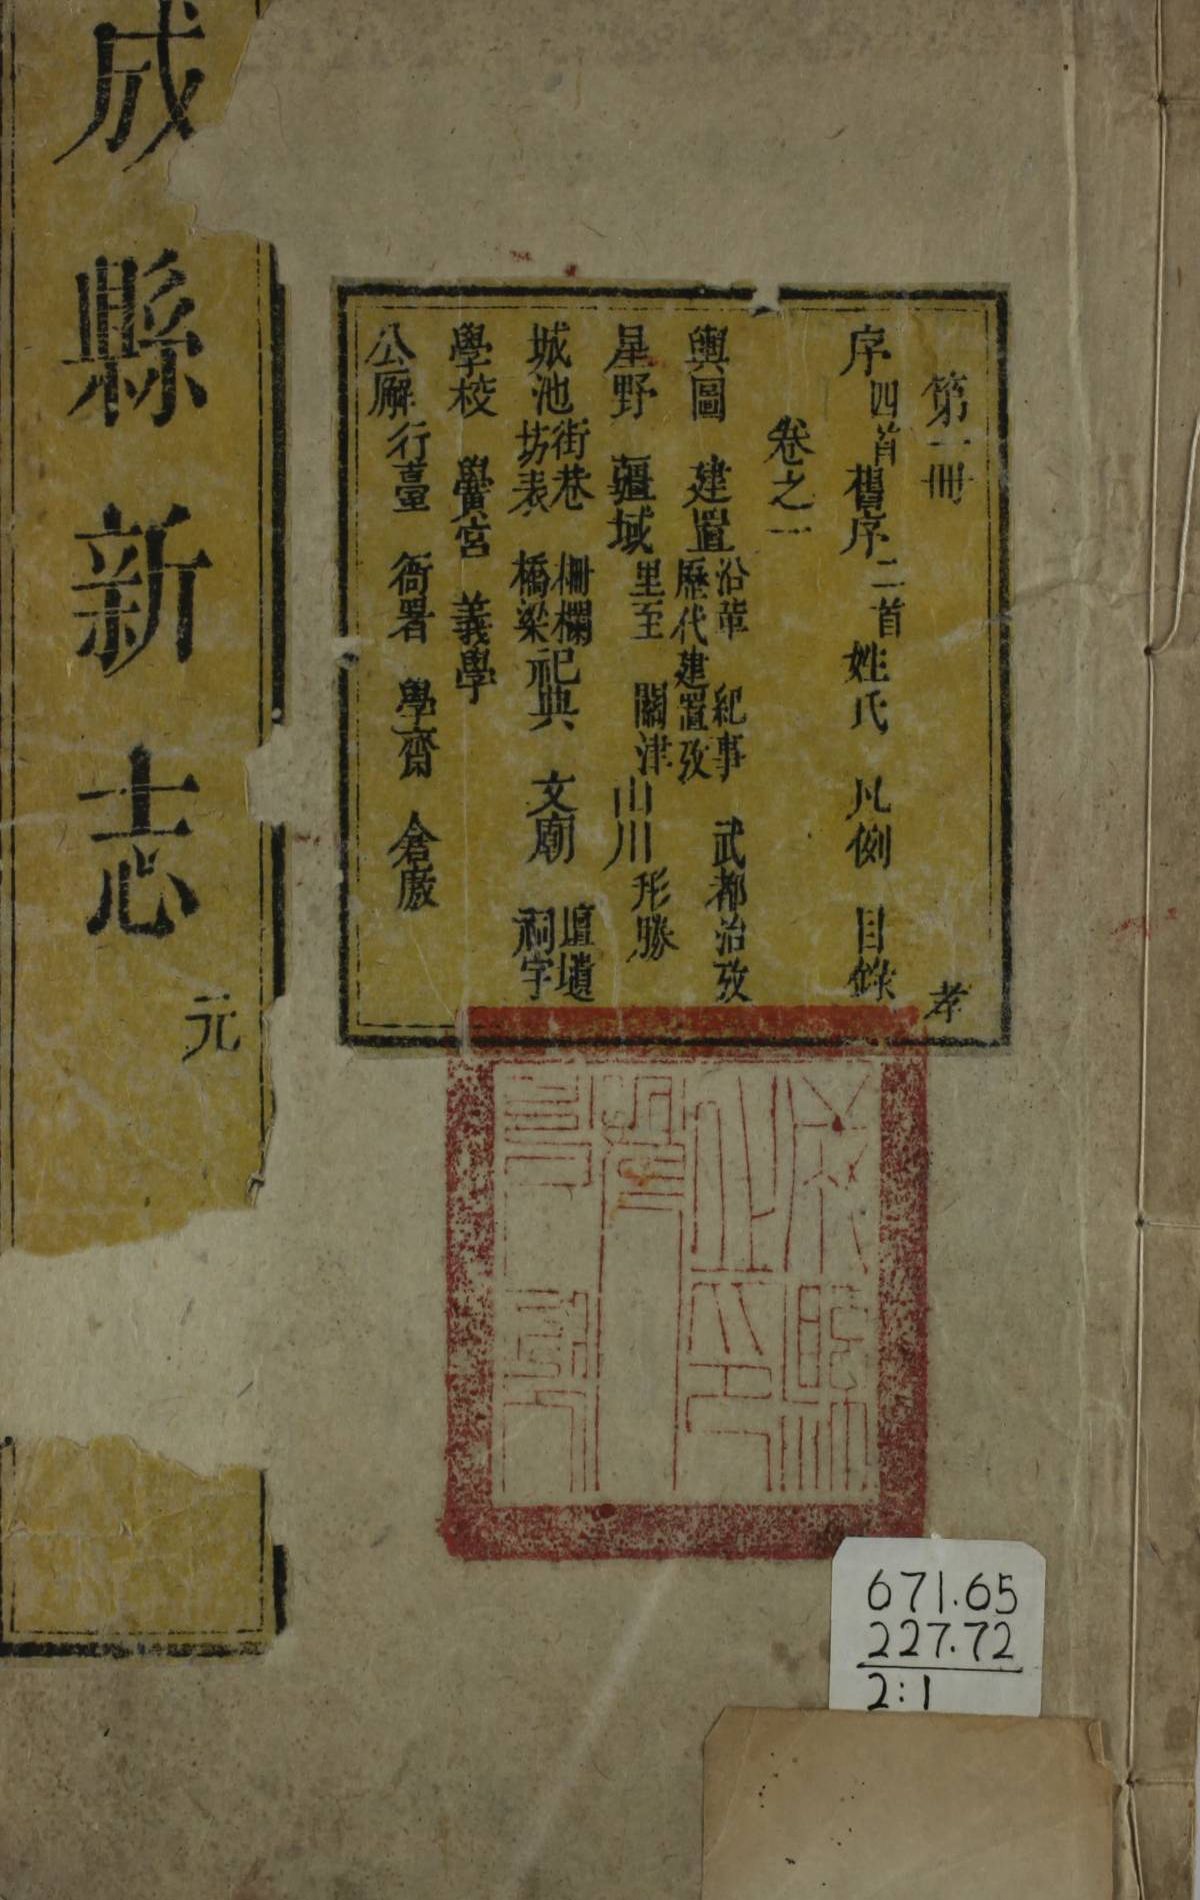 第一冊 孝
序 四首 舊序 二首 姓氏 凡例 目錄
卷之一
輿圖 建置 沿革 紀事 武都治攷 歷代建置攷
星野 疆域 里至 關津 山川 形勝
城池 街巷 坊表 柵欄 橋梁 祀典 文廟 壇壝 祠宇
學校 黌宮 義學
公廨 行臺 衙署 學齋 倉廒
成縣新志 元
671.65
227.72
2:1